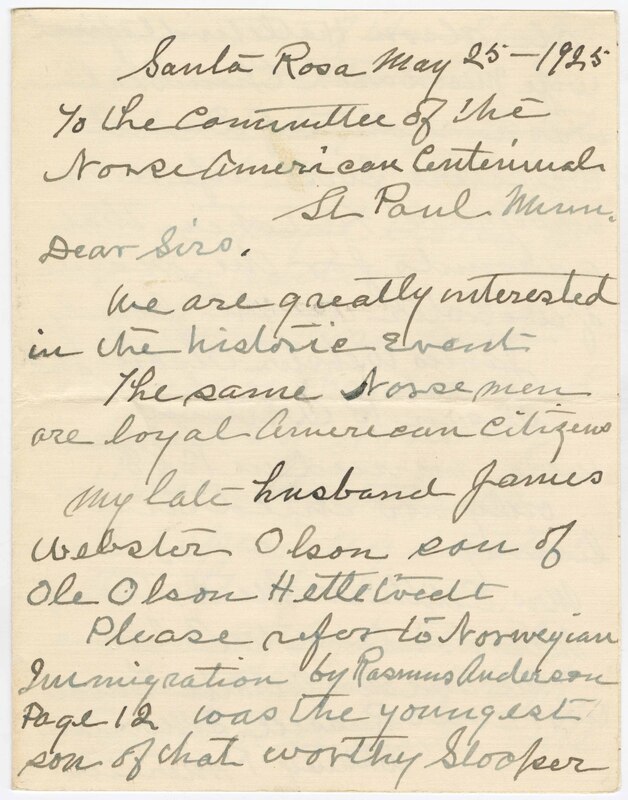 Santa Rosa May 25 - 1925
To the Committee of the
Norse American Centinnial
St Paul Minn.
Dear Sirs.
We are greatly interested
in the historic Event
The same Norse men
are loyal American Citizens
My late husband James
Webster Olson son of
Ole Olson Hetletvedt
Please refer to Norwegian
Immigration by Rasmus Anderson
Page 12 was the youngest
son of that worthy Slooper